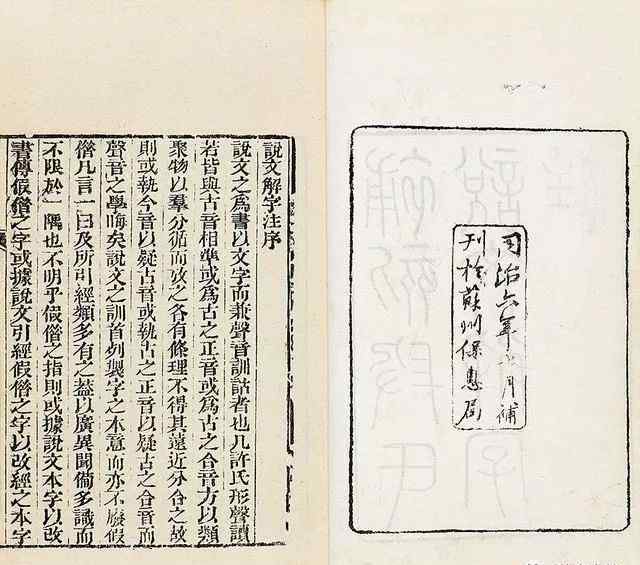 同治六年月補
刊於蘇州保息局
說文解字注序
說文之爲書以文字而兼聲音訓詁者也凡許氏形聲讀
若皆與古音相準或爲古之正音或爲古之合音方以類
聚物以羣分循而攷之各有條理不得其遠近分合之故
則或執今音以疑古音或執古之正音以疑古之合音而
聲音之學晦矣說文之訓首列製字之本意而亦不廢假
借凡言一曰及所引經類多有之蓋以廣異聞備多識而
不限於一隅也不明乎假借之指則或據說文本字以改
書傳假借之字或據說文引經假借之字以改經之本字